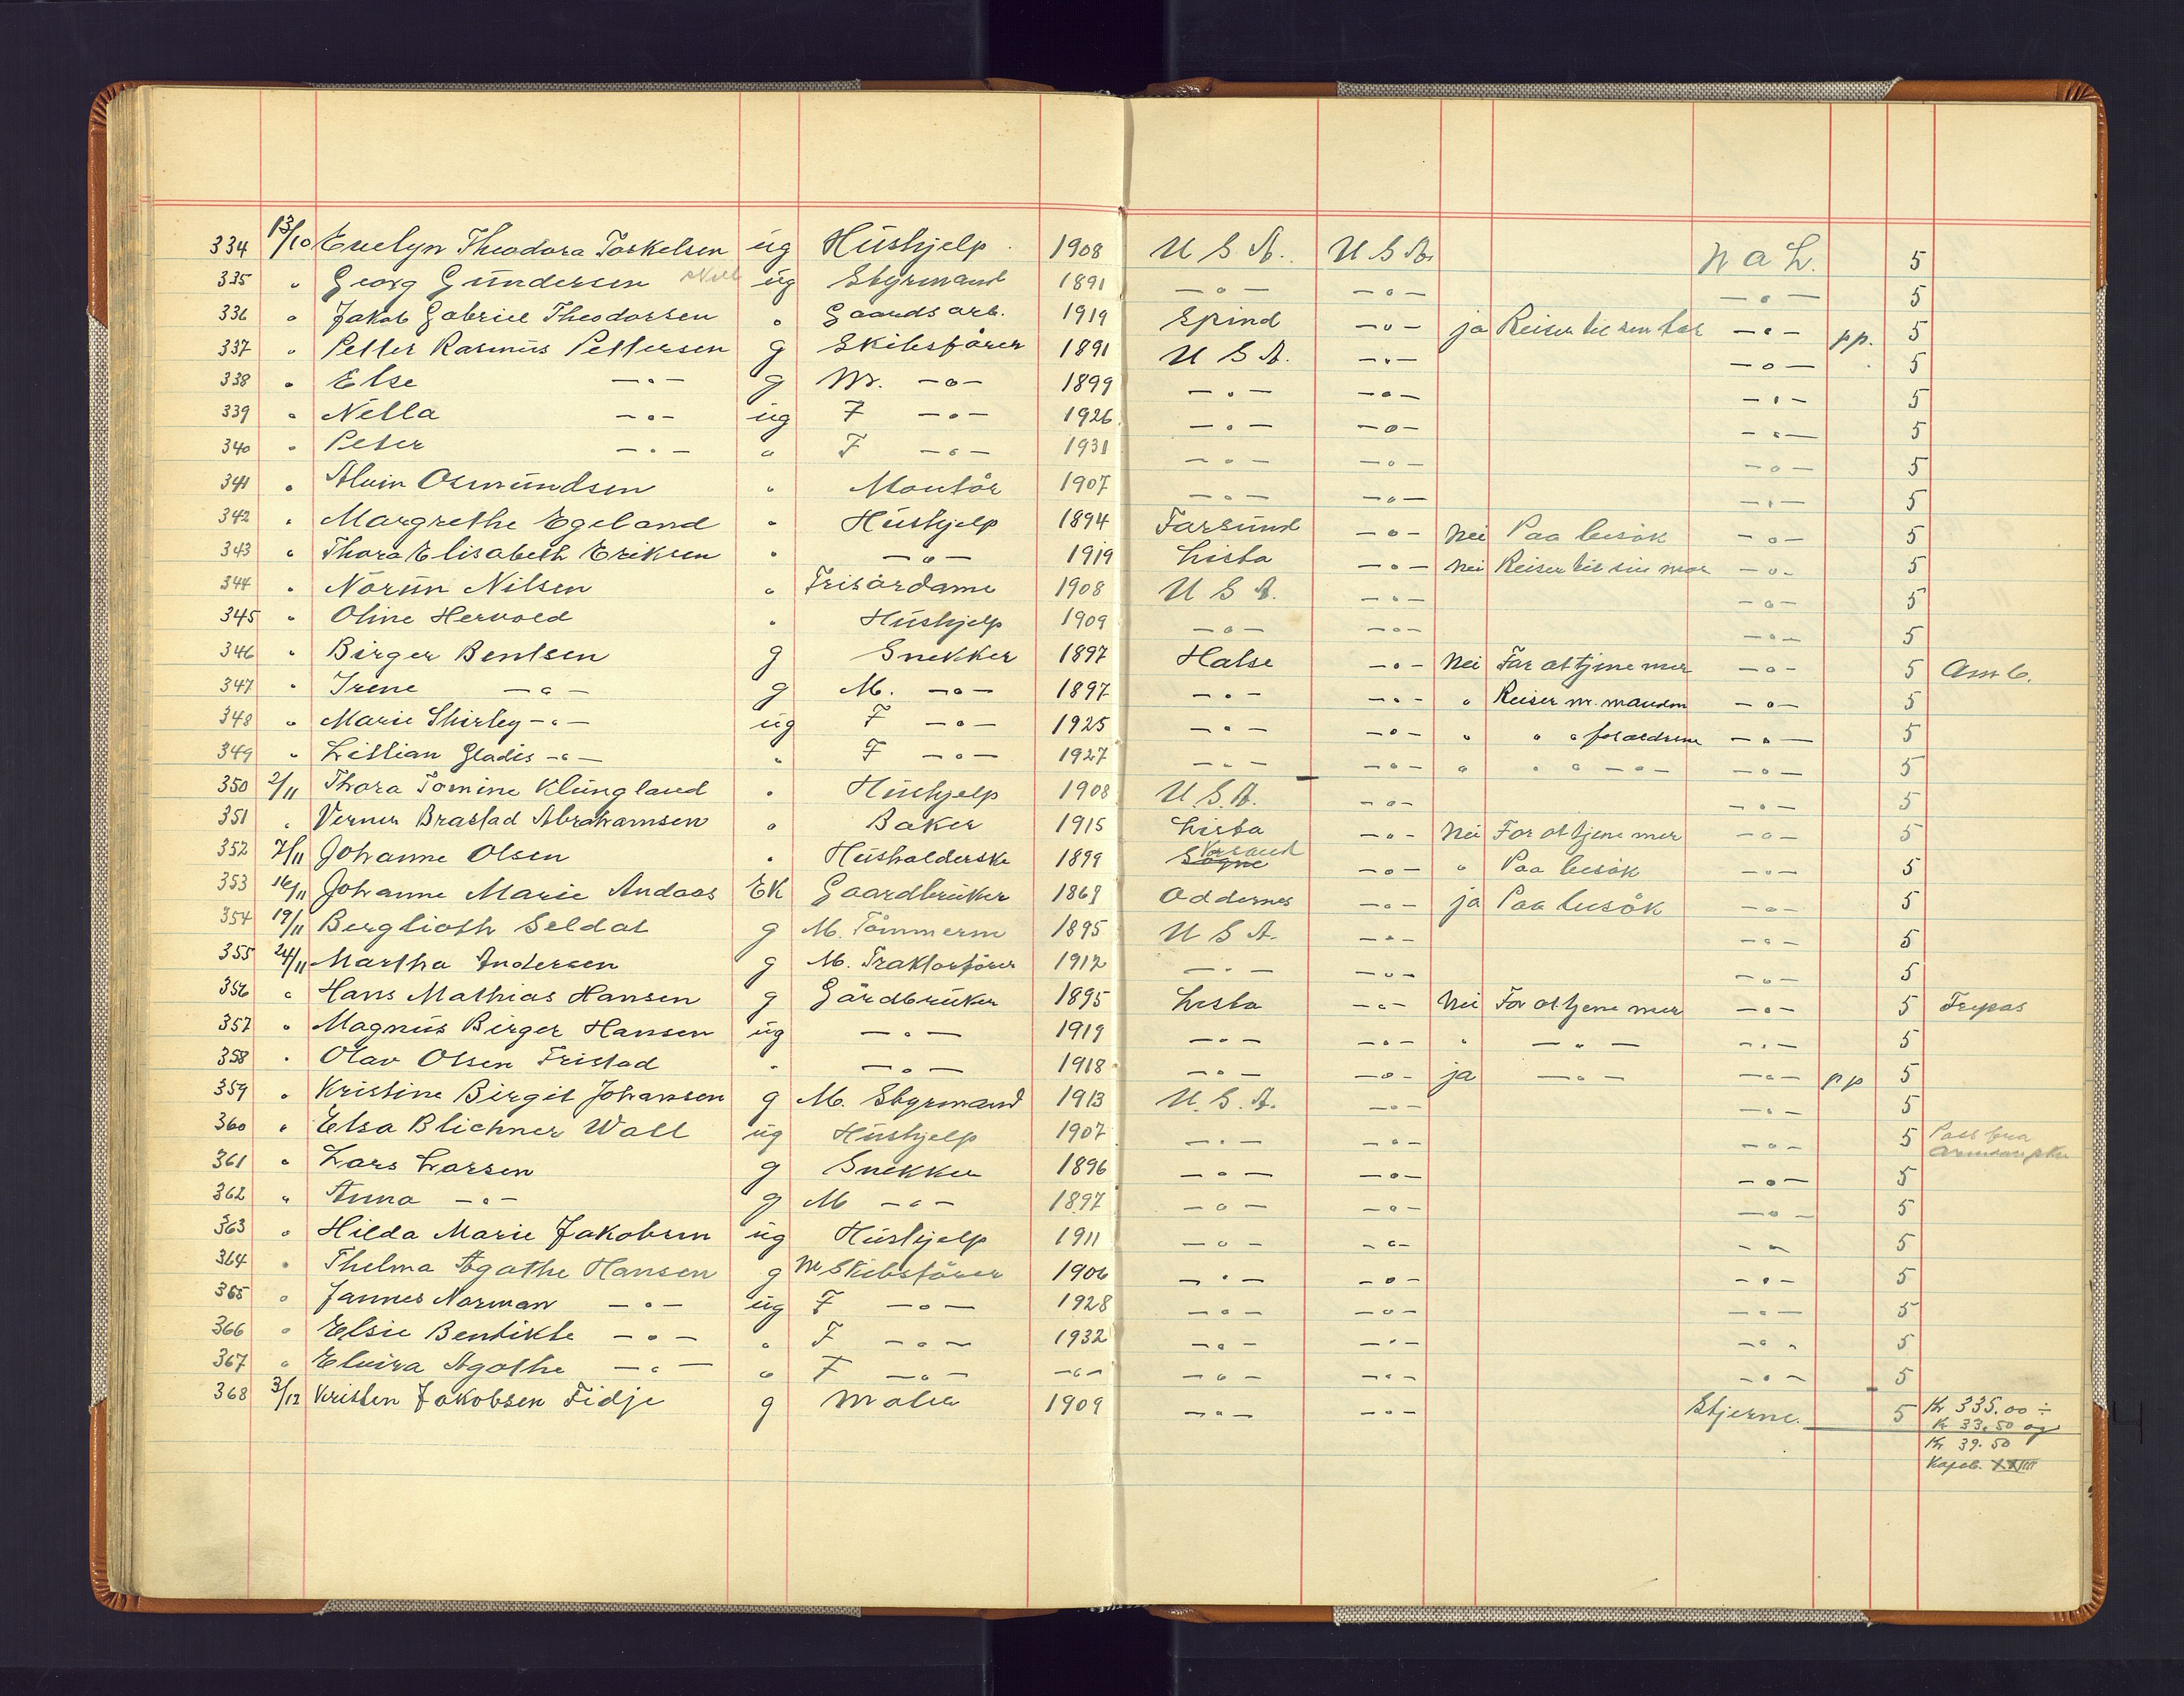 334 13/10 Evelyn Theodora Torkelsen ug Hushjelp 1908 U S A. U S A. N a L. 5
335 " Georg Gundersen ug Styrmand 1891 —o— —o— —o— 5
336 " Jakob Gabriel Theodorsen " Gaardsarb. 1919 Spind —o— ja Reiser til sin far —o— pp. 5
337 " Petter Rasmus Pettersen g Skibsförer 1891 U. S A. —o— —o— 5
338 " Else —o— g M. —o— 1899 —o— —o— —o— 5
339 " Nella —o— ug F —o— 1926 —o— —o— —o— 5
340 " Peter —o— " F —o— 1931 —o— —o— —o— 5
341 " Alvin Osmundsen " Montör 1907 —o— —o— —o— 5
342 " Margrethe Egeland " Hushjelp 1894 Farsund —o— Nei Paa besök —o— 5
343 " Thora Elisabeth Eriksen " —o— 1919 Lista —o— Nei Reiser til sin mor —o— 5
344 " Norun Nilsen " Frisördame 1908 U S A. —o— —o— 5
345 " Oline Hervold " Hushjelp 1909 —o— —o— —o— 5
346 " Birger Bentsen g Snekker 1897 Halse —o— Nei For at tjene mer —o— 5 Amb.
347 " Irene —o— g M. —o— 1897 —o— —o— " Reiser m. manden —o— 5
348 " Marie Shirley —o— ug F —o— 1925 —o— —o— " " " foraldrene —o— 5
349 " Lillian Gladis —o— " F —o— 1927 —o— —o— " " " —o— —o— 5
350 2/11 Thora Tomine Klungland " Hushjelp 1908 U. S. A. —o— —o— 5
351 " Verner Brastad Abrahamsen " Baker 1915 Lista —o— Nei For at tjene mer —o— 5
352 7/11 Johanne Olsen " Husholderske 1899 Sögne Krsand —o— " Paa besök —o— 5
353 16/11 Johanne Marie Andaas EK Gaardbruker 1869 Oddernes —o— ja Paa besök —o— 5
354 19/11 Berglioth Seldal g M. Tömmerm 1895 U S A. —o— —o— 5
355 24/11 Martha Andersen g M. Traktorförer 1912 —o— —o— —o— 5
356 " Hans Mathias Hansen g Gårdbruker 1895 Lista —o— Nei For at tjene mer —o— 5 Frepas
357 " Magnus Birger Hansen ug —o— 1919 —o— —o— " —o— —o— 5
358 " Olav Olsen Tristad " —o— 1918 —o— —o— ja —o— —o— pp 5
359 " Kristine Birgit Johansen g M. Styrmand 1913 U. S. A. —o— —o— 5
360 " Elsa Blichner Wall ug Hushjelp 1907 —o— —o— —o— 5 Pass fra
361 " Lars Larsen g Snekker 1896 —o— —o— —o— 5
362 " Anna —o— g M —o— 1897 —o— —o— —o— 5
363 " Hilda Marie Jakobsen ug Hushjelp 1911 —o— —o— —o— 5
364 " Thelma Agathe Hansen g M Skibsförer 1906 —o— —o— —o— 5
365 " Jannes Norman —o— ug F —o— 1928 —o— —o— —o— 5
366 " Elsie Bentikte —o— " F —o— 1932 —o— —o— —o— 5
367 " Elvira Agathe —o— " F —o— —o— —o— —o— —o— 5
368 3/12 Kristen Jakobsen Fidje g Maler 1909 —o— —o— Stjerne. 5 Kr 335.00 ÷
Kr 33.50 og
Kr. 39.50
Kapeb. XXIIII